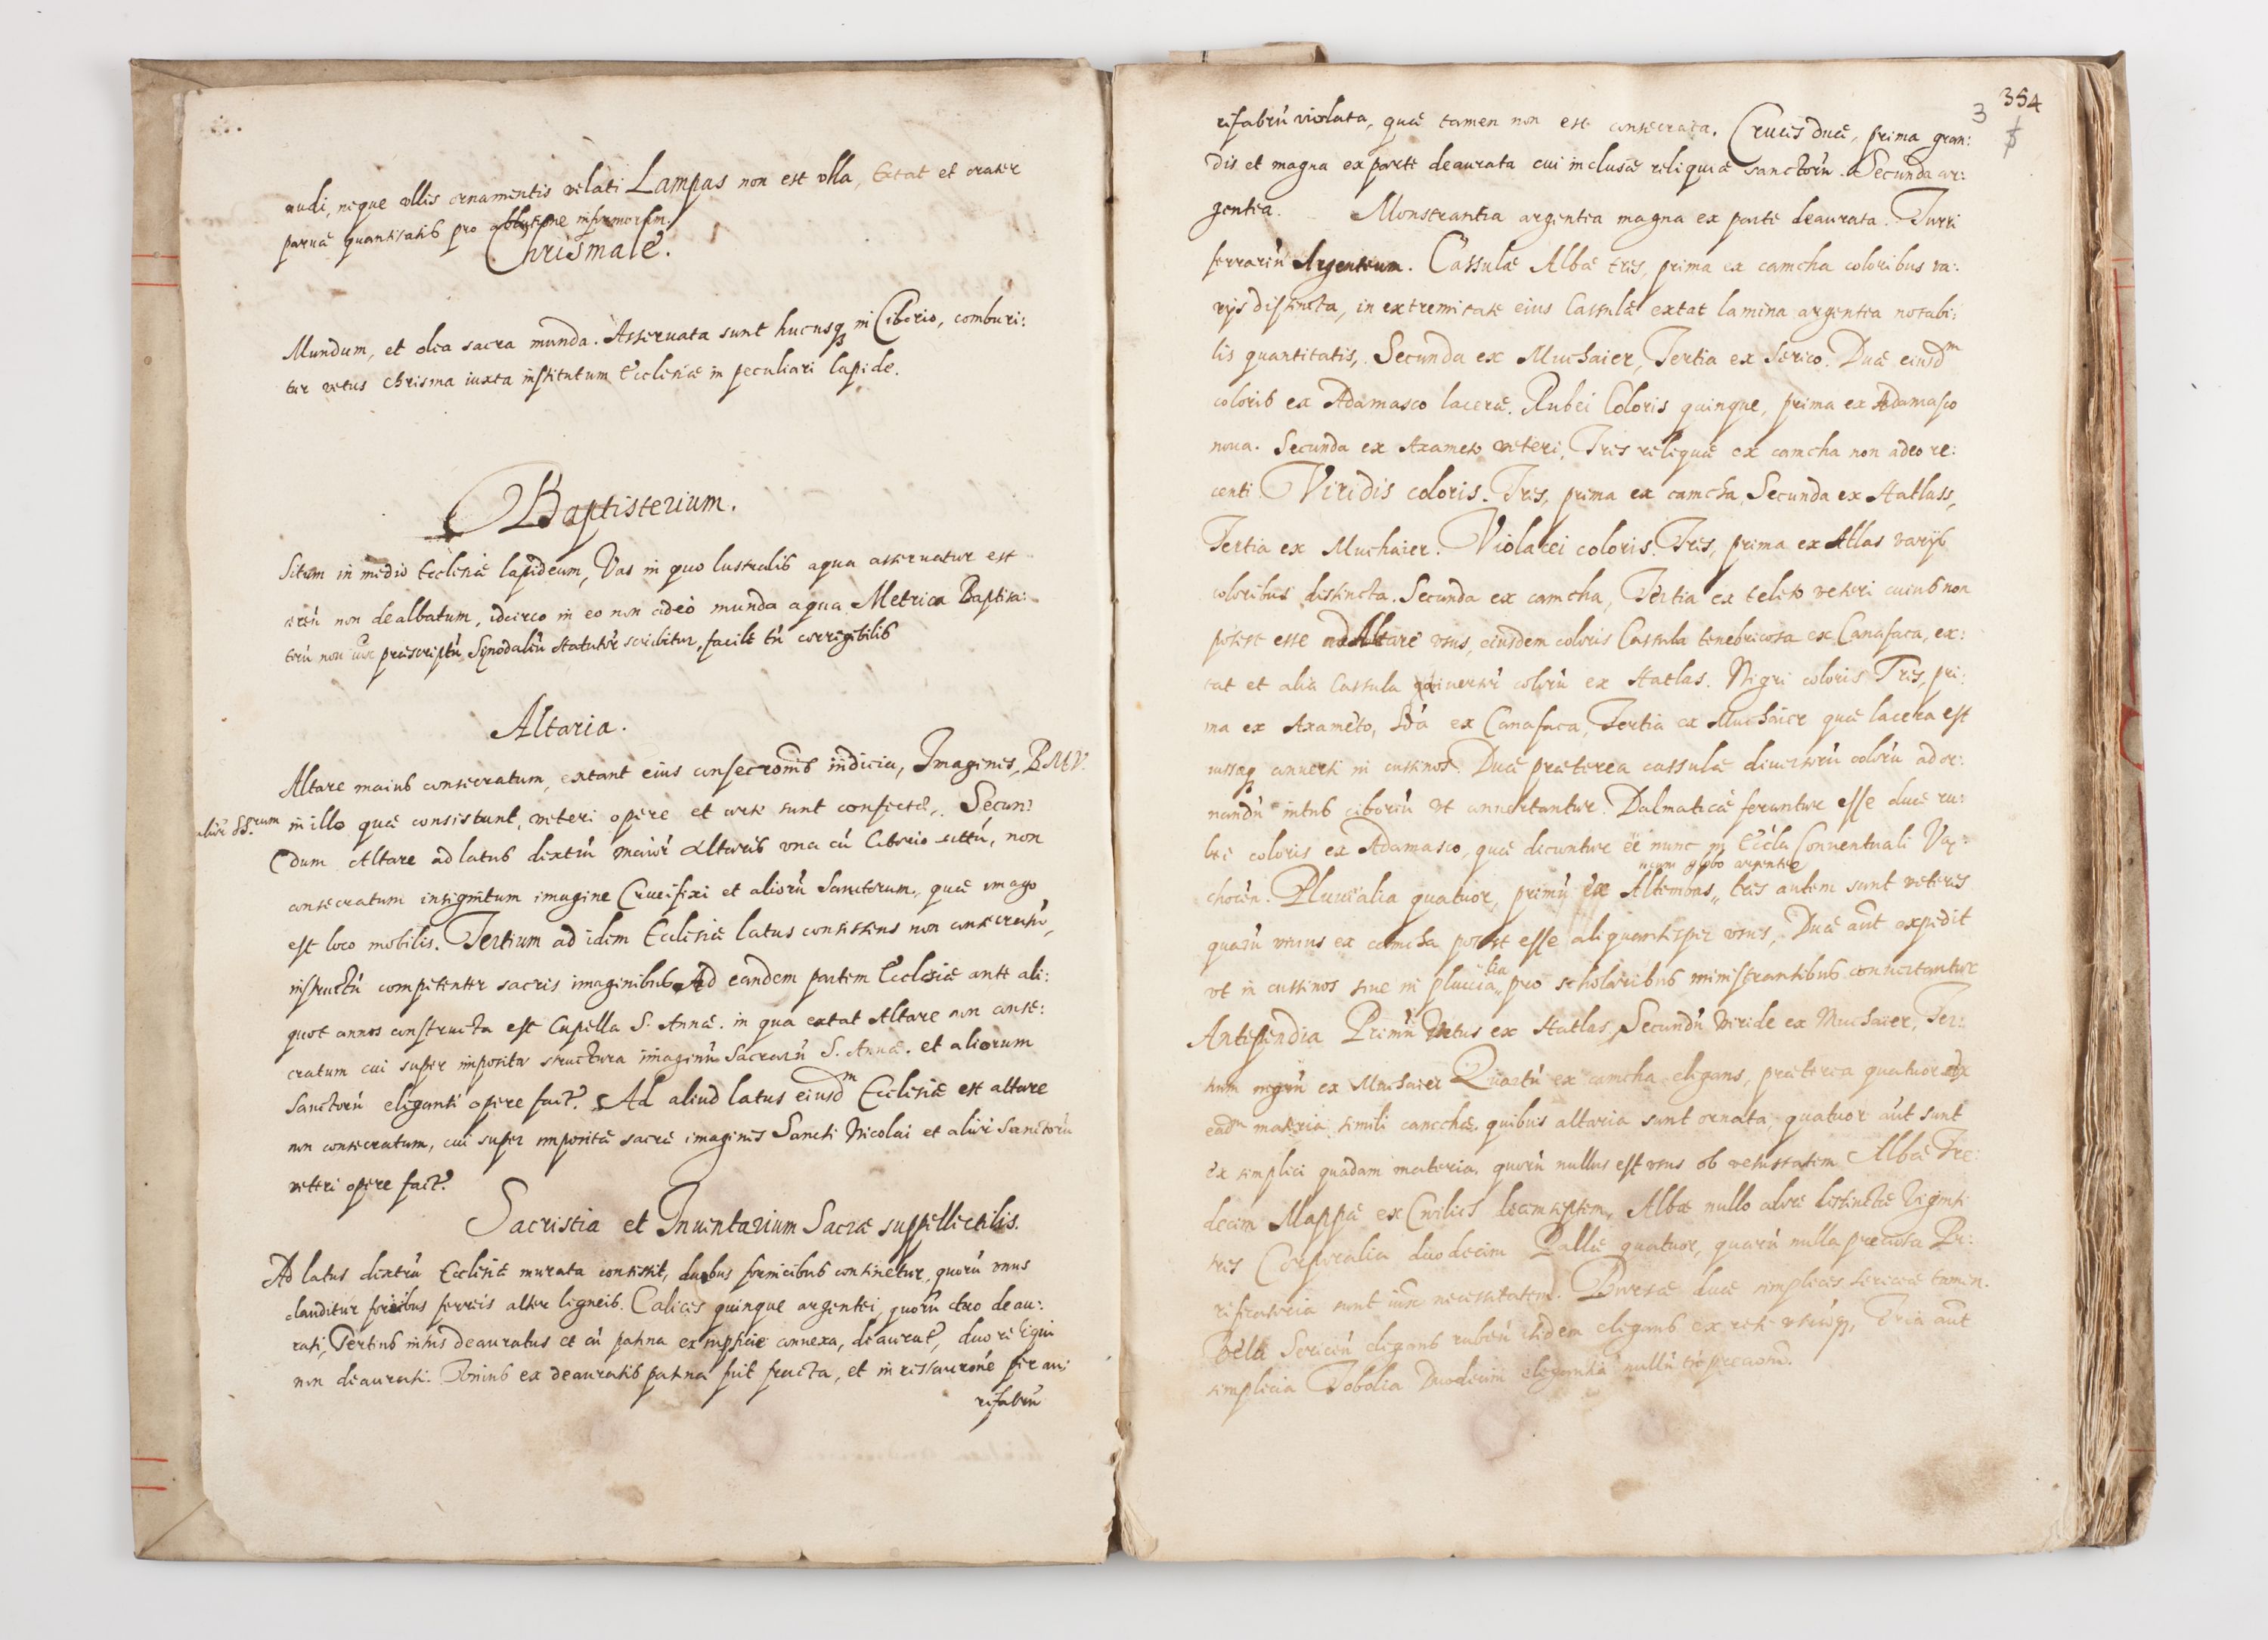 nudi, neque ullis ornamentis velati Lampas non est ulla, Extat et crater
paruæ quantitatis pro ablutione infirmorum.
Chrismale.
Mundum, et olea sacra munda. Asseruata sunt hucusq in Ciborio, comburi:
tur vetus chrisma iuxta institutum Ecclesiæ in peculiari lapide.
Baptisterium.
Situm in medio Ecclesiæ lapideum, Vas in quo lustralis aqua asseruatur est
non dealbatum, idcirco in eo non adeò munda aqua. Metrica Baptisa:
torũ non iux præscriptũ Synodaliũ statutor̃ scribitur, facile tñ corrigibilis
Altaria.
Altare maius consecratum, extant eius consecronis indicia, Imagines, B.M.V.
alior̃ SS.rum in illo quæ consistunt, veteri opere et arte sunt confectæ. Secun:
dum Altare ad latus dextrũ maior̃ altaris una cũ Ciborio sittũ, non
consecratum insignitum imagine Crucifixi et aliorũ Sanctorum, quæ imago
est loco mobilis. Tertium ad idem Ecclesiæ latus consistens non consecratũ,
instructũ competenter sacris imaginibus Ad eandem partem Ecclesiæ ante ali:
quot annos constructa est Capella S. Annæ. in qua extat Altare non conse:
cratum cui super imposita structura imaginũ Sacrarũ S. Annæ. et aliorum
Sanctorũ eleganti opere fact. Ad aliud latus eiusdm Ecclesiæ est altare
non consecratum, cui super impositæ sacræ imagines Sancti Nicolai et alior̃ Sanctorũ
veteri opere fact.
Sacristia et Inuentarium Sacræ suppellectilis.
Ad latus dextrũ Ecclesiæ murata consistit, duobus fornicibus continetur, quorũ unus
clauditur foribus ferreis alter ligneis. Calices quinque argentei, quorũ duo deau:
rati, Tertius intus deauratus et cũ patina ex simplicie connexa, deaurat, duo reliqui
non deaurati. Unius ex deauratis patina fuit fracta, et in restaurone per au:
rifabrũ
3 354
rifabrũ violata, quæ tamen non est consecrata. Cruces duæ, prima gran:
dis et magna ex parte deaurata cui inclusæ reliquiæ sanctorũ. Secunda ar:
gentea. Monstrantia argentea magna ex parte deaurata. Turri
ferrariũ Argenteum. Cassulæ Albæ tres, prima ex camcha coloribus va:
rijs distincta, in extremitate eius Cassulæ extat lamina argentea notabi:
lis quantitatis, Secunda ex Muchaier, Tertia ex Serico. Duæ eiusdm
coloris ex Adamasco laceræ. Rubei Coloris quinque, prima ex Adamasco
noua. Secunda ex Axameto veteri. Tres reliquæ ex camcha non adeo re:
centi Viridis coloris. Tres, prima ex camcha, Secunda ex Hatlass,
Tertia ex Muchaier. Violacei coloris. Tres, prima ex Atlas varijs
coloribus distincta. Secunda ex camcha, Tertia ex teleto veteri cuius non
potest esse ad Altare usus, eiusdem coloris Cassula tenebricosa ex Canafaca, ex:
tat et alia Cassula diuersor̃ colorũ ex Hatlas. Nigri coloris Tres, pri:
ma ex Axameto, Sdá ex Canafaca, Tertia ex Muchaier quæ lacera est
iussaq conuerti in cussinos. Duæ præterea cassulæ diuersorũ colorũ ad or:
nandũ intus ciboriũ ut conuertantur. Dalmaticæ feruntur esse duæ ru:
bei coloris ex Adamasco, quæ dicuntur ẽe nunc in Eccla Conuentuali
chocen. Pluuialia quatuor, primũ ex Altembas cum globo argenteo, tres autem sunt veteres
quarũ unus ex camcha potest esse aliquantisper usus, Duæ aũt expedit
ut in cussinos siue in pluuialia pro scholaribus ministrantibus conuertantur
Antependia Primũ Vetus ex Hatlas, Secundũ Viride ex Muchaier, Ter:
tium nigrũ ex Muchaier Quartũ ex camcha elegans, præterea quatuor ex
eadm materia simili camchæ quibus altaria sunt ornata, quatuor aũt sunt
ex simplici quadam materia, quorũ nullus est usus ob vetustatem Albæ Tre:
decim Mappæ ex Cwilich decem septem, Albæ nullo alvæ distinctæ Viginti
tres Corporalia duodecim Pallæ quatuor, quarũ nulla preciosa Pu:
rificatoria sunt iux necessitatem. Bursæ duæ simplices sericeæ tamen.
Vela Sericũ elegans rubeũ itidem elegans ex rete, Tria aũt
simplicia Tobolia Duodecim elegantia nullũ tñ preciosũ.